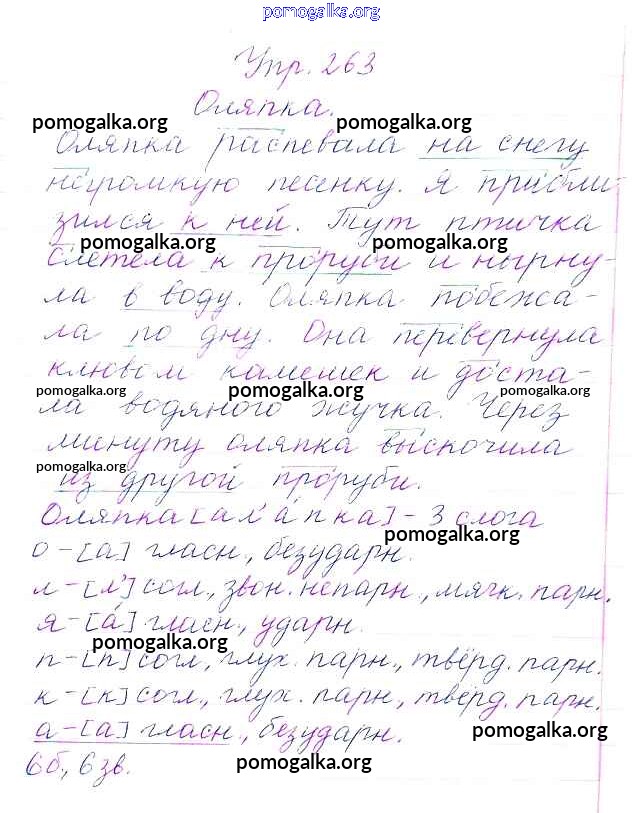 pomogalka.org
Упр. 263
Оляпка.
pomogalka.org pomogalka.org
Оляпка распевала на снегу
негромкую песенку. Я прибли-
зился к ней. Тут птичка
pomogalka.org pomogalka.org
слетела к проруби и нырну-
ла в воду. Оляпка побежа-
ла по дну. Она перевернула
клювом камешек и доста-
pomogalka.org pomogalka.org pomogalka.org
ла водяного жучка. Через
минуту оляпка выскочила
pomogalka.org pomogalka.org
из другой проруби.
Оляпка [ал'апка] - 3 слога
pomogalka.org
о - [а] гласн., безударн.
л - [л'] согл., звон. непарн., мягк. парн.
я - [а́] гласн., ударн.
pomogalka.org
п - [п] согл., глух. парн., твёрд. парн.
к - [к] согл., глух. парн., твёрд. парн.
а - [а] гласн., безударн.
pomogalka.org
6б., 6 зв.
pomogalka.org